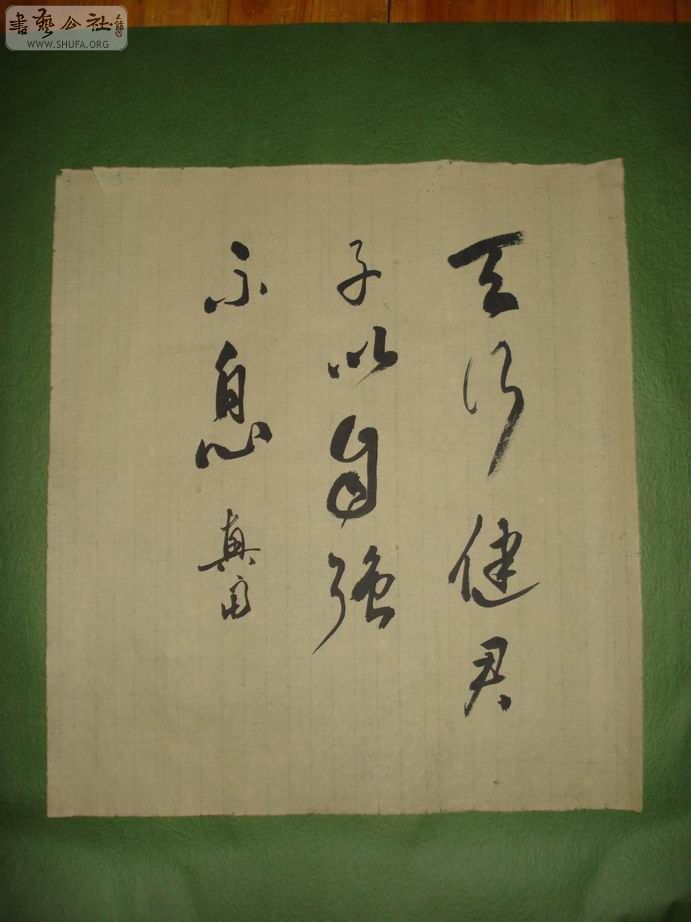 天行健君
子以自强
不息 真
書藝公社
WWW.SHUFA.ORG